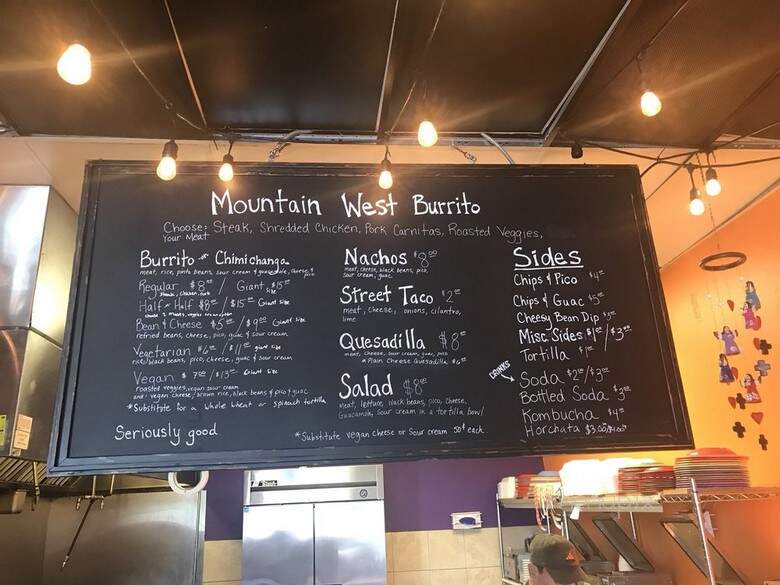 Mountain West Burrito
Choose: Steak, Shredded Chicken, Pork Carnitas, Roasted Veggies,
Your Meat
Burrito or Chimichanga
meat, rice, pinto beans, sour cream
Regular $8 / Giant $15 size
Half + Half $8 / $15 Giant size
Bean & Cheese $5 / $9 Giant size
refried beans, cheese, pico, guac & sour cream
Vegetarian $6 / $11 giant size
rice, black beans, pico, cheese, guac & sour cream
Vegan $7 / $13 Giant size
roasted veggies, vegan sour cream
and vegan cheese, brown rice, black beans & pico & guac
*Substitute for a whole wheat or spinach tortilla
Seriously good
Nachos $8
meat, cheese, black beans, pico,
sour cream, guac
Street Taco $2
meat, cheese, onions, cilantro,
lime
Quesadilla $8
meat, cheese, sour cream, guac, pico
*Plain Cheese Quesadilla $6
Salad $8
meat, lettuce, black beans, pico, cheese,
Guacamole, Sour cream in a tortilla bowl
*Substitute vegan cheese or Sour cream 50¢ each
Sides
Chips & Pico $4
Chips & Guac $5
Cheesy Bean Dip $5
Misc Sides $1 / $3
Tortilla $1
DRINKS
Soda $2 / $3
Bottled Soda $3
Kombucha $4
Horchata $3.00/$4.00